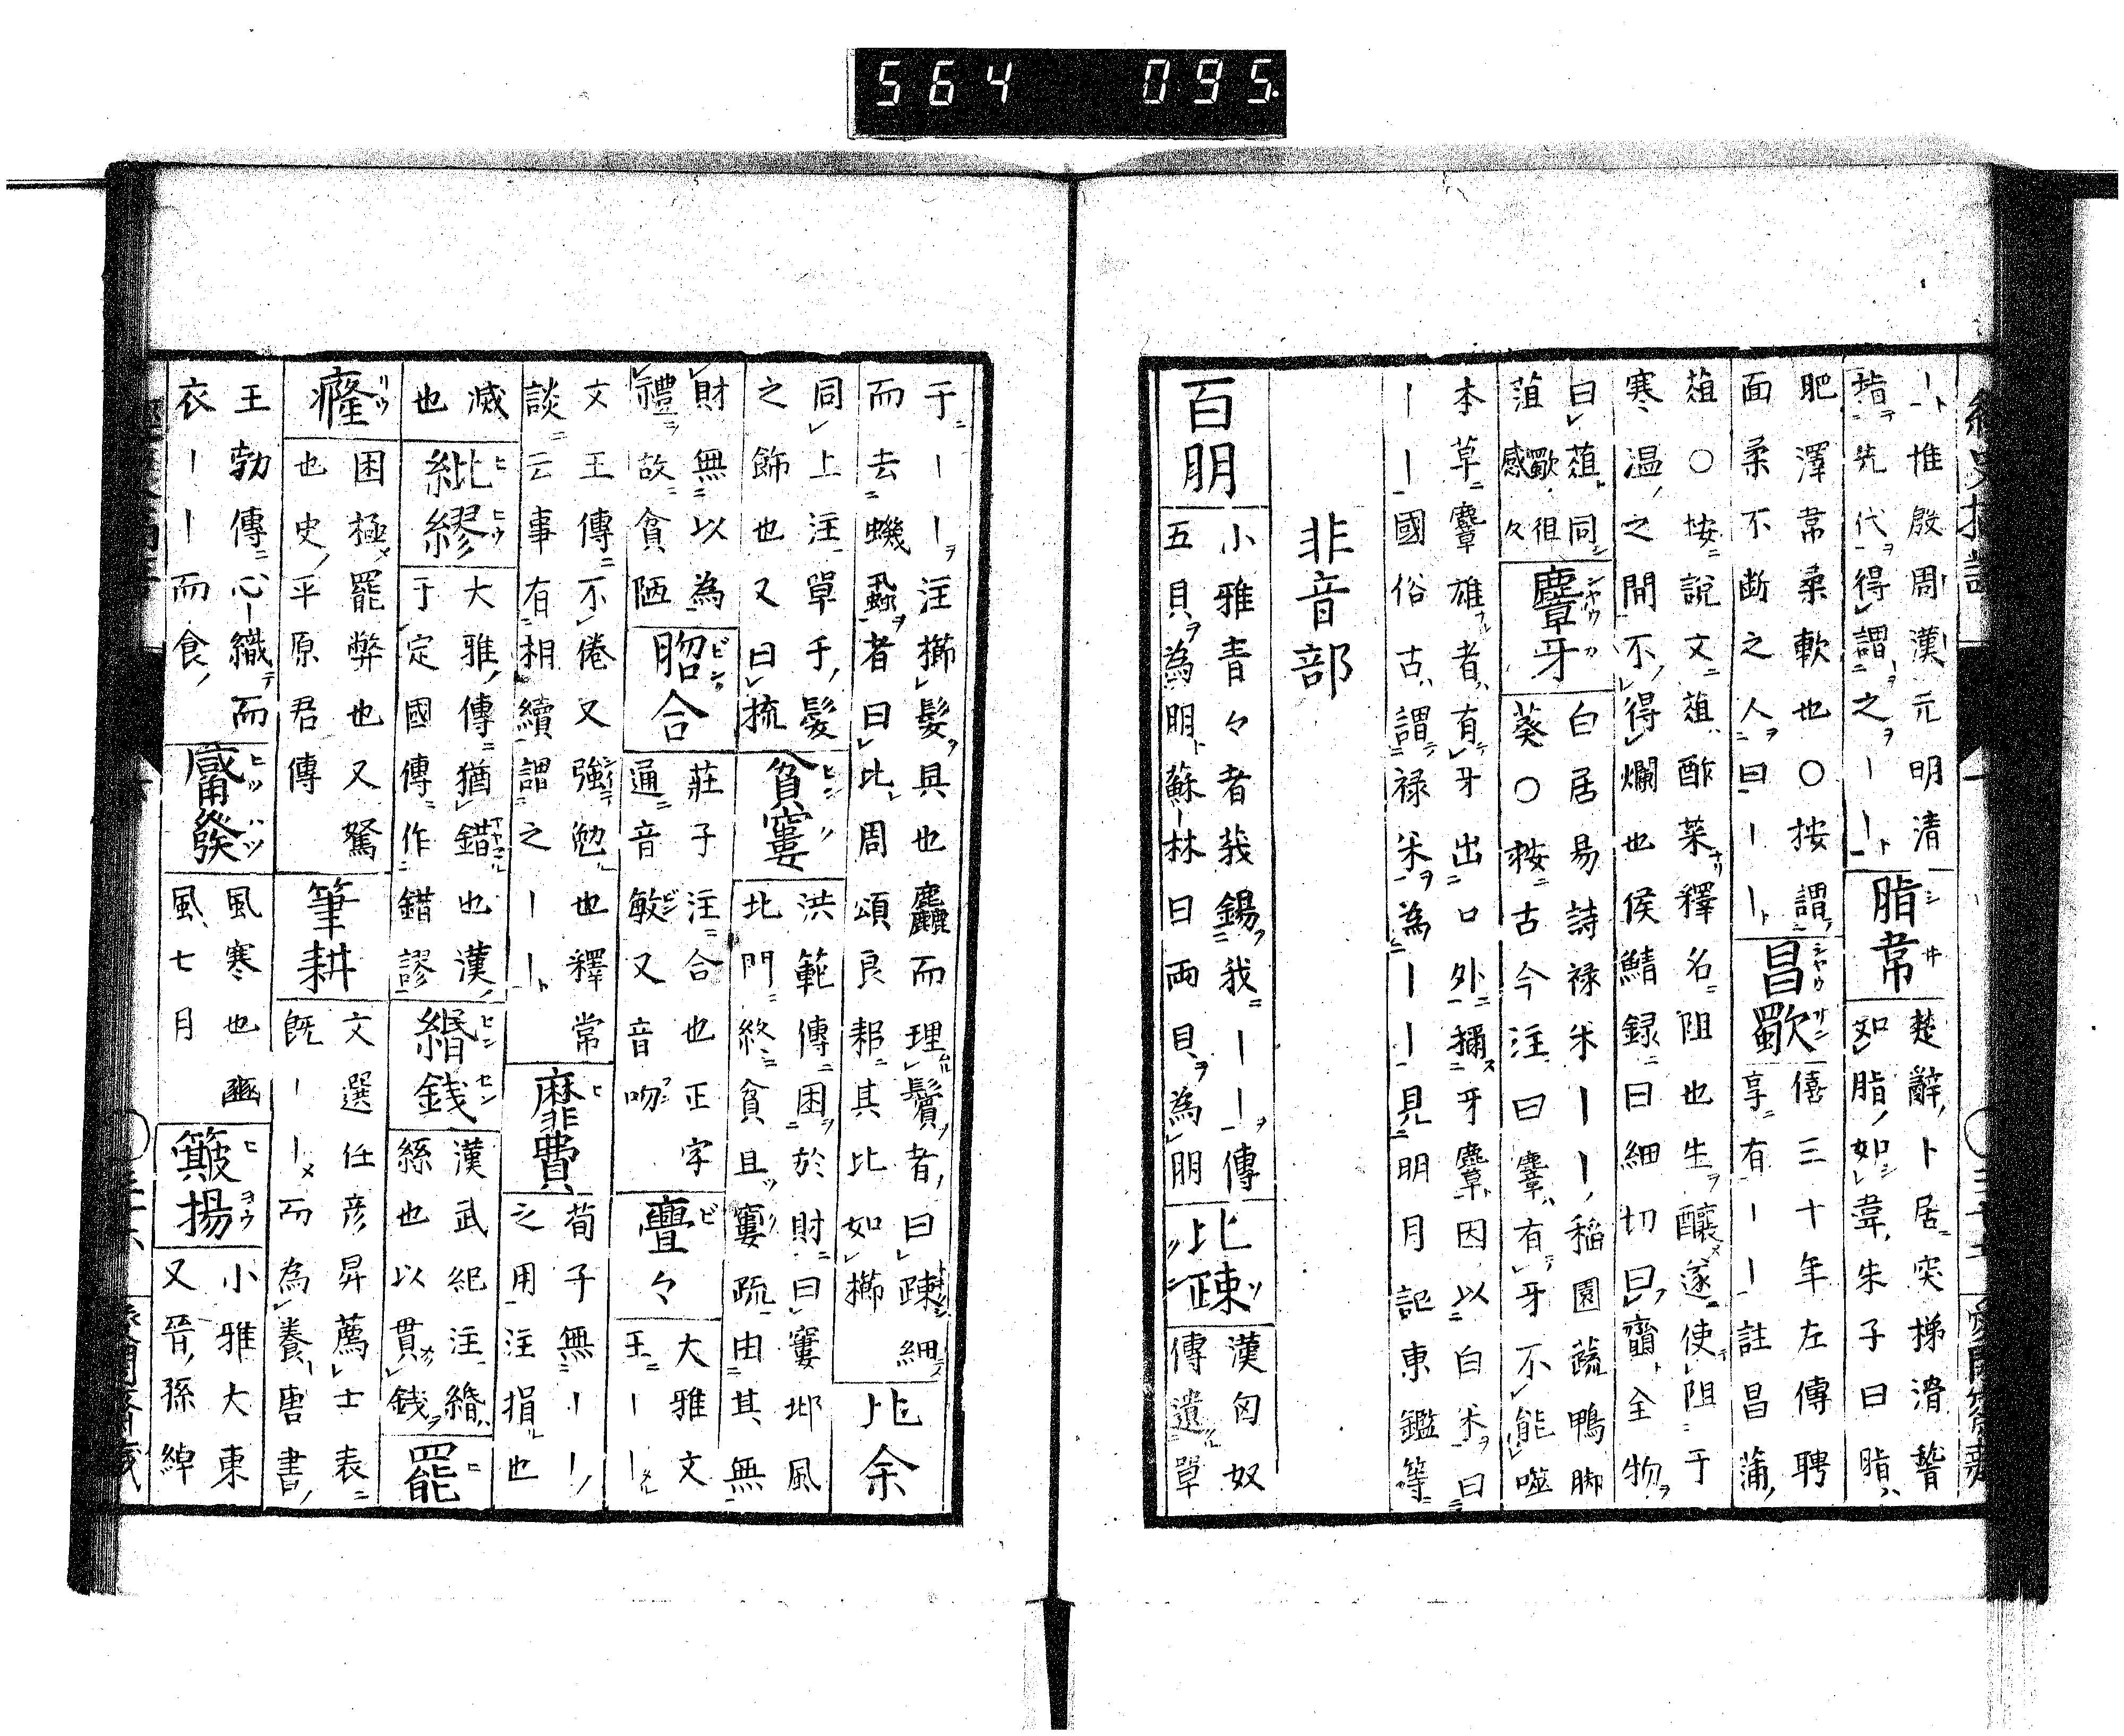 564 095
｜｜惟殷周漢元明清
指先代得謂之｜｜
脂韋
楚辭卜居突梯滑稽
如脂如韋朱子曰脂
肥澤韋柔軟也○按謂
面柔不断之人曰｜｜
昌歜
僖三十年左傳聘
享有｜｜註昌蒲
葅○按說文葅酢菜釋名阻也生釀遂使阻于
寒温之間不得爛也侯鯖録曰細切曰齏全物
曰葅同
菹歜徂感久
麞牙
白居易詩禄米｜｜稲園蔬鴨脚
葵○按古今注曰麞有牙不能噬
本草麞雄者有牙出口外獼牙麞因以白米曰
｜｜國俗古謂禄米為｜｜見明月記東鑑等
非音部
百朋
小雅青々者莪錫我｜｜傳
五貝為朋蘇林曰兩貝為朋
比疎
漢匈奴
傳遺單
于｜｜注櫛髮具也麤而理鬢者曰疎細
而去蟣蝨者曰比周頌良耜其比如櫛
比余
同上注單于髮
之飾也又曰梳
貧窶
洪範傳困於財曰窶邶風
北門終貧且窶疏由其無
財無以為
禮故貧陋
䐇合
莊子注合也正字
通音敏又音吻
亹々
大雅文
王｜｜
文王傳不倦又強勉也釋常
談云事有相續謂之｜｜
靡費
荀子無｜｜
之用注損也
滅
也
紕繆
大雅傳猶錯也漢
于定國傳作錯謬
緡錢
漢武紀注緡
絲也以貫錢
罷
癃
困極罷弊也又駑
也史平原君傳
筆耕
文選任彦昇薦士表
既｜｜而為養唐書
王勃傳心織而
衣｜｜而食
觱發
風寒也豳
風七月
簸揚
小雅大東
又晉孫綽